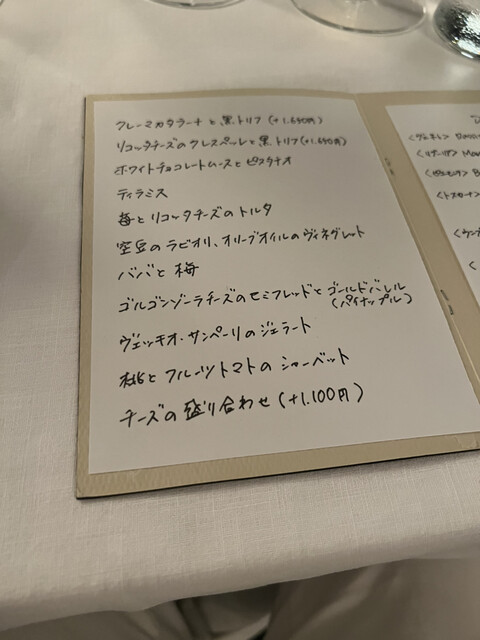 クレーマカタラーナと黒トリフ(+1.650円)
リコッタチーズのクレスペッレと黒トリフ(+1.650円)
ホワイトチョコレートムースとピスタチオ
ティラミス
苺とリコッタチーズのトルタ
空豆のラビオリ、オリーブオイルのヴィネグレット
ババと梅
ゴルゴンゾーラチーズのセミフレッドとゴールドバレル
(パイナップル)
ヴェッキオ・サンペーリのジェラート
桃とフルーツトマトのシャーベット
チーズの盛り合わせ(+1.100円)